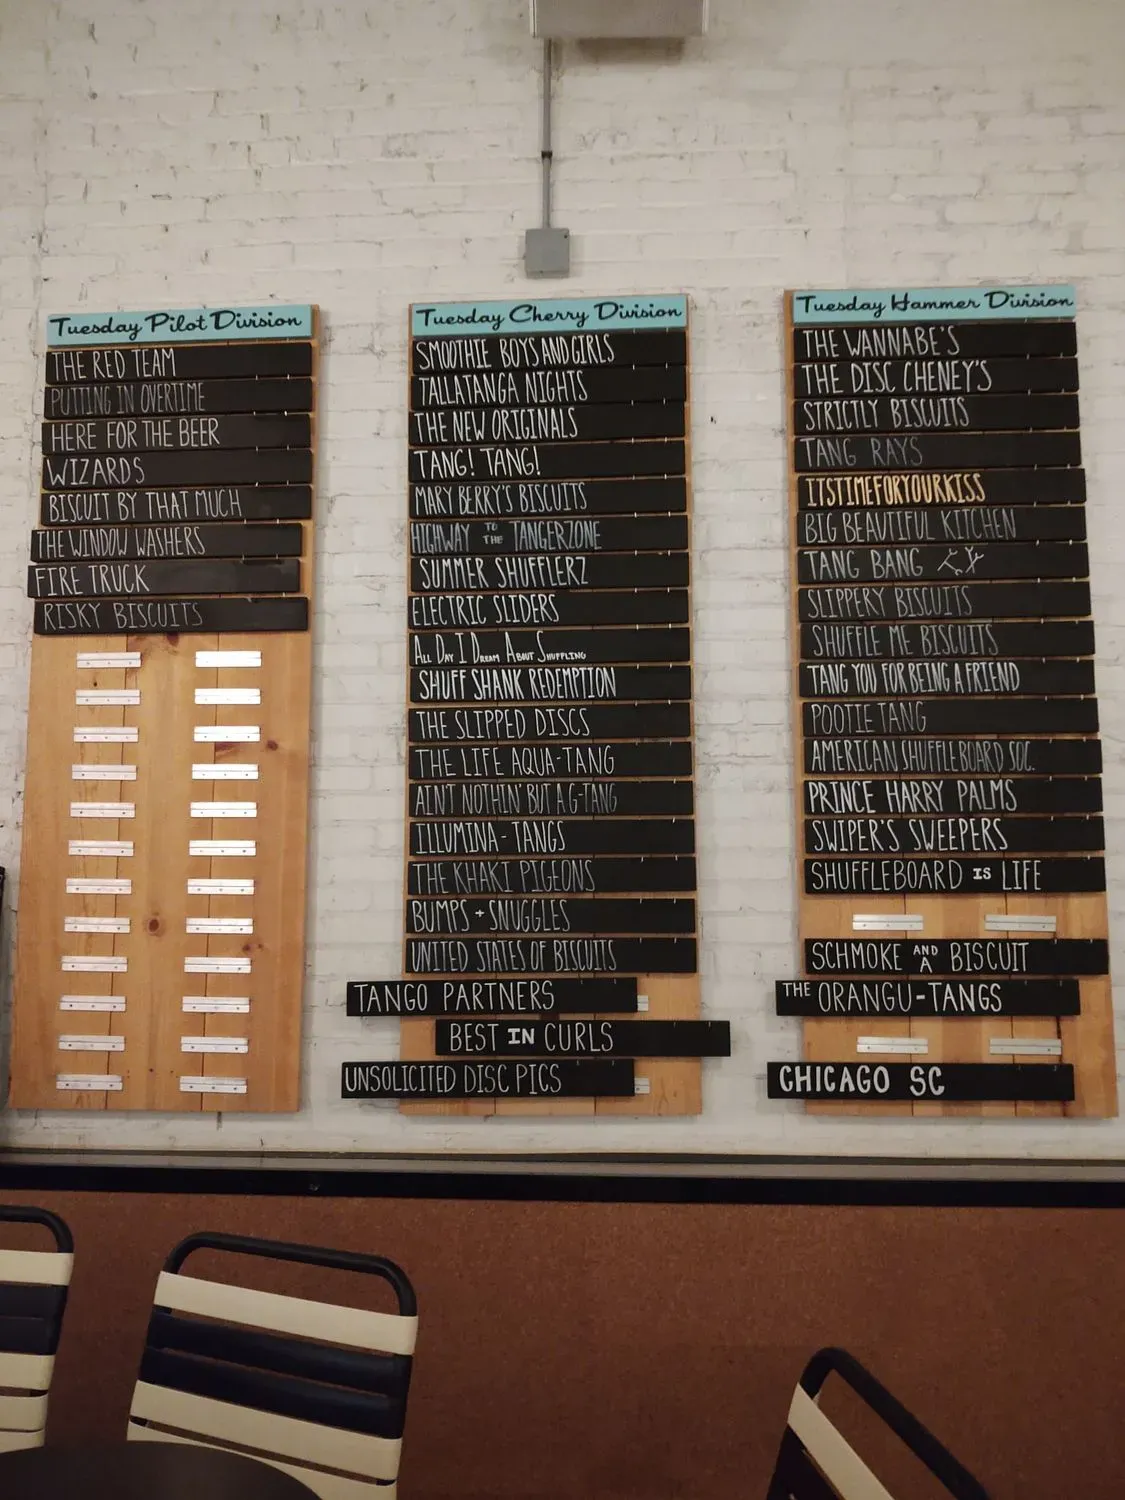 Tuesday Pilot Division
THE RED TEAM
PUTTING IN OVERTIME
HERE FOR THE BEER
WIZARDS
BISCUIT BY THAT MUCH
THE WINDOW WASHERS
FIRE TRUCK
RISKY BISCUITS
Tuesday Cherry Division
SMOOTHIE BOYS AND GIRLS
TALLATANGA NIGHTS
THE NEW ORIGINALS
TANG! TANG!
MARY BERRY'S BISCUITS
HIGHWAY TO THE TANGERZONE
SUMMER SHUFFLERZ
ELECTRIC SLIDERS
ALL DAY I DREAM ABOUT SHUFFLING
SHUFF SHANK REDEMPTION
THE SLIPPED DISCS
THE LIFE AQUA-TANG
AIN'T NOTHIN' BUT A G-TANG
ILLUMINA-TANGS
THE KHAKI PIGEONS
BUMPS + SNUGGLES
UNITED STATES OF BISCUITS
TANGO PARTNERS
BEST IN CURLS
UNSOLICITED DISC PICS
Tuesday Hammer Division
THE WANNABE'S
THE DISC CHENEY'S
STRICTLY BISCUITS
TANG RAYS
ITSTIMEFORYOURKISS
BIG BEAUTIFUL KITCHEN
TANG BANG
SLIPPERY BISCUITS
SHUFFLE ME BISCUITS
TANG YOU FOR BEING A FRIEND
POOTIE TANG
AMERICAN SHUFFLEBOARD SOC.
PRINCE HARRY PALMS
SWIPER'S SWEEPERS
SHUFFLEBOARD IS LIFE
SCHMOKE AND A BISCUIT
THE ORANGU-TANGS
CHICAGO SC